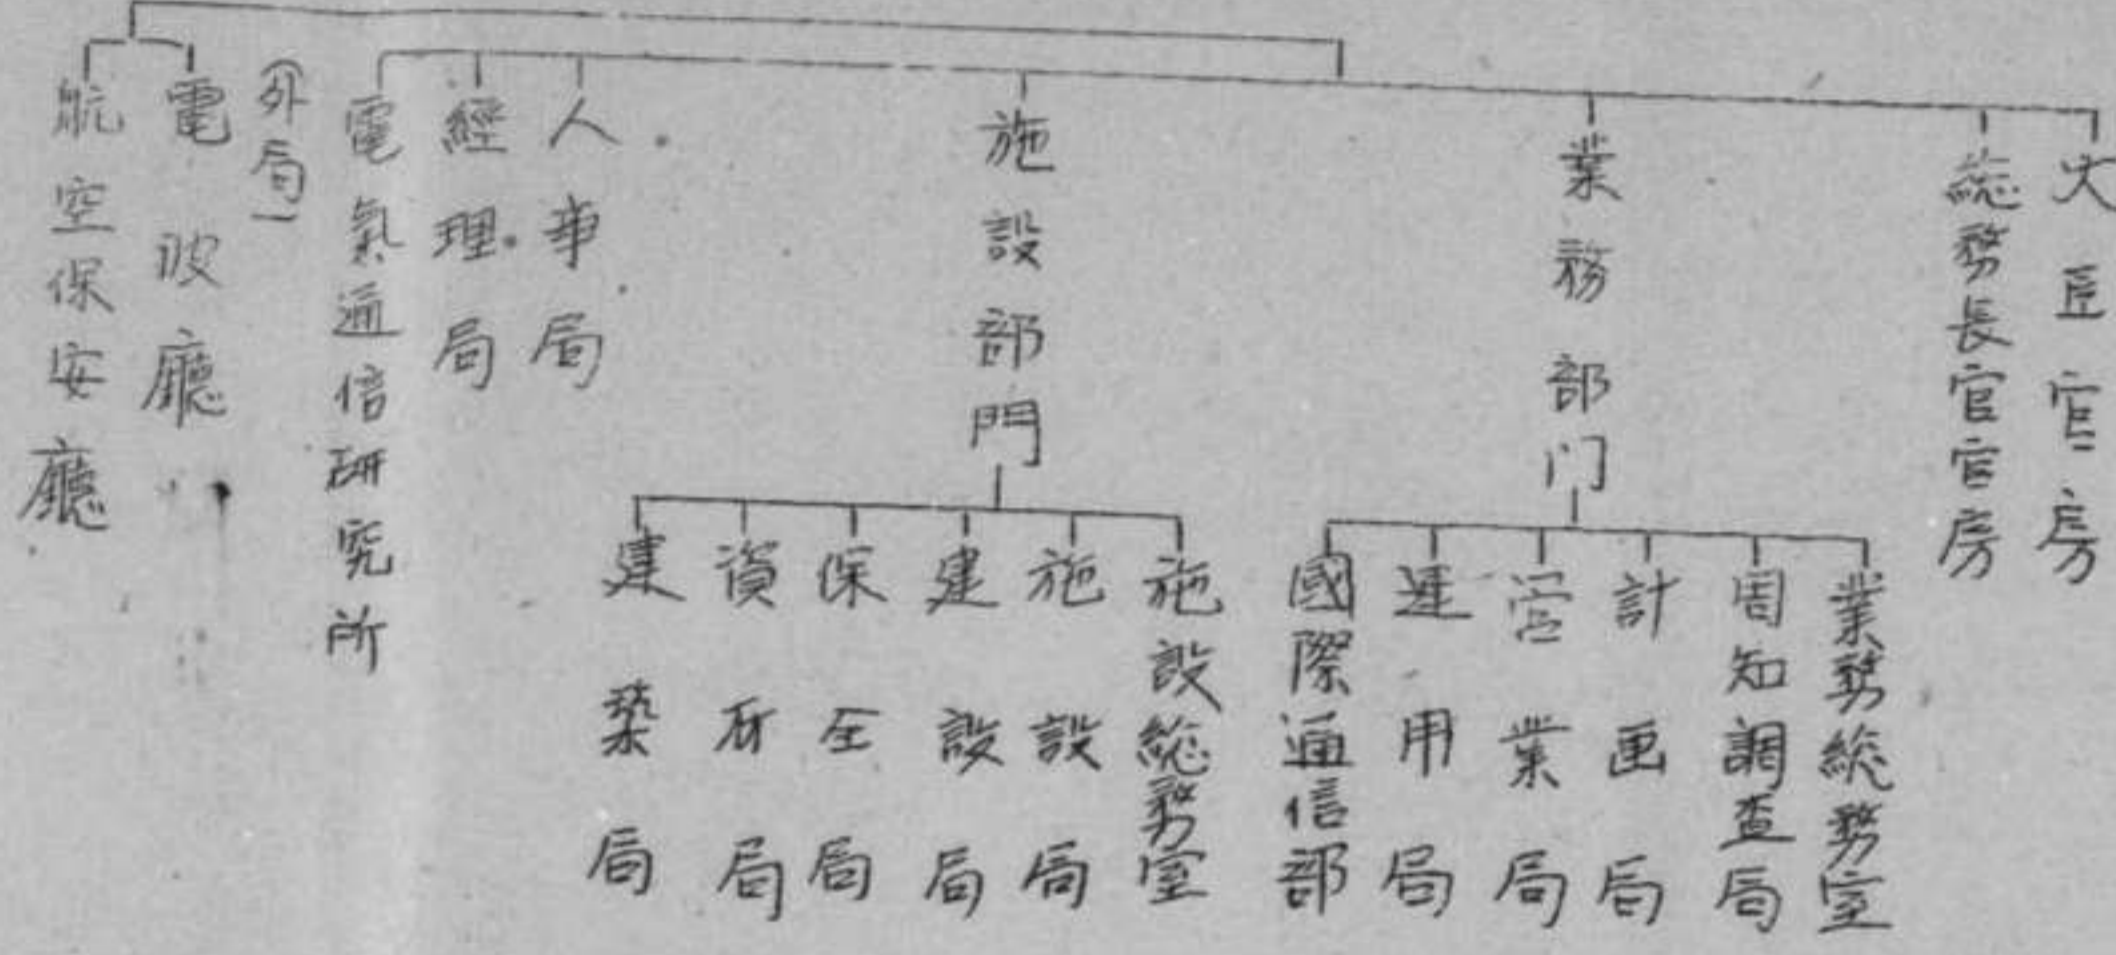 大臣官房
総務長官官房
業務部门
業務総務室
周知調査局
計画局
営業局
運用局
國際通信部
施設部門
施設総務室
施設局
建設局
保全局
資材局
建築局
人事局
經理局
電氣通信研究所
(外局)
電波廳
航空保安廳